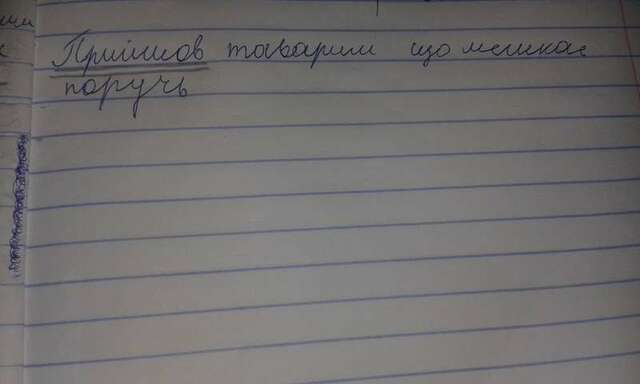 Прийшов товариш що мешкає
поручь